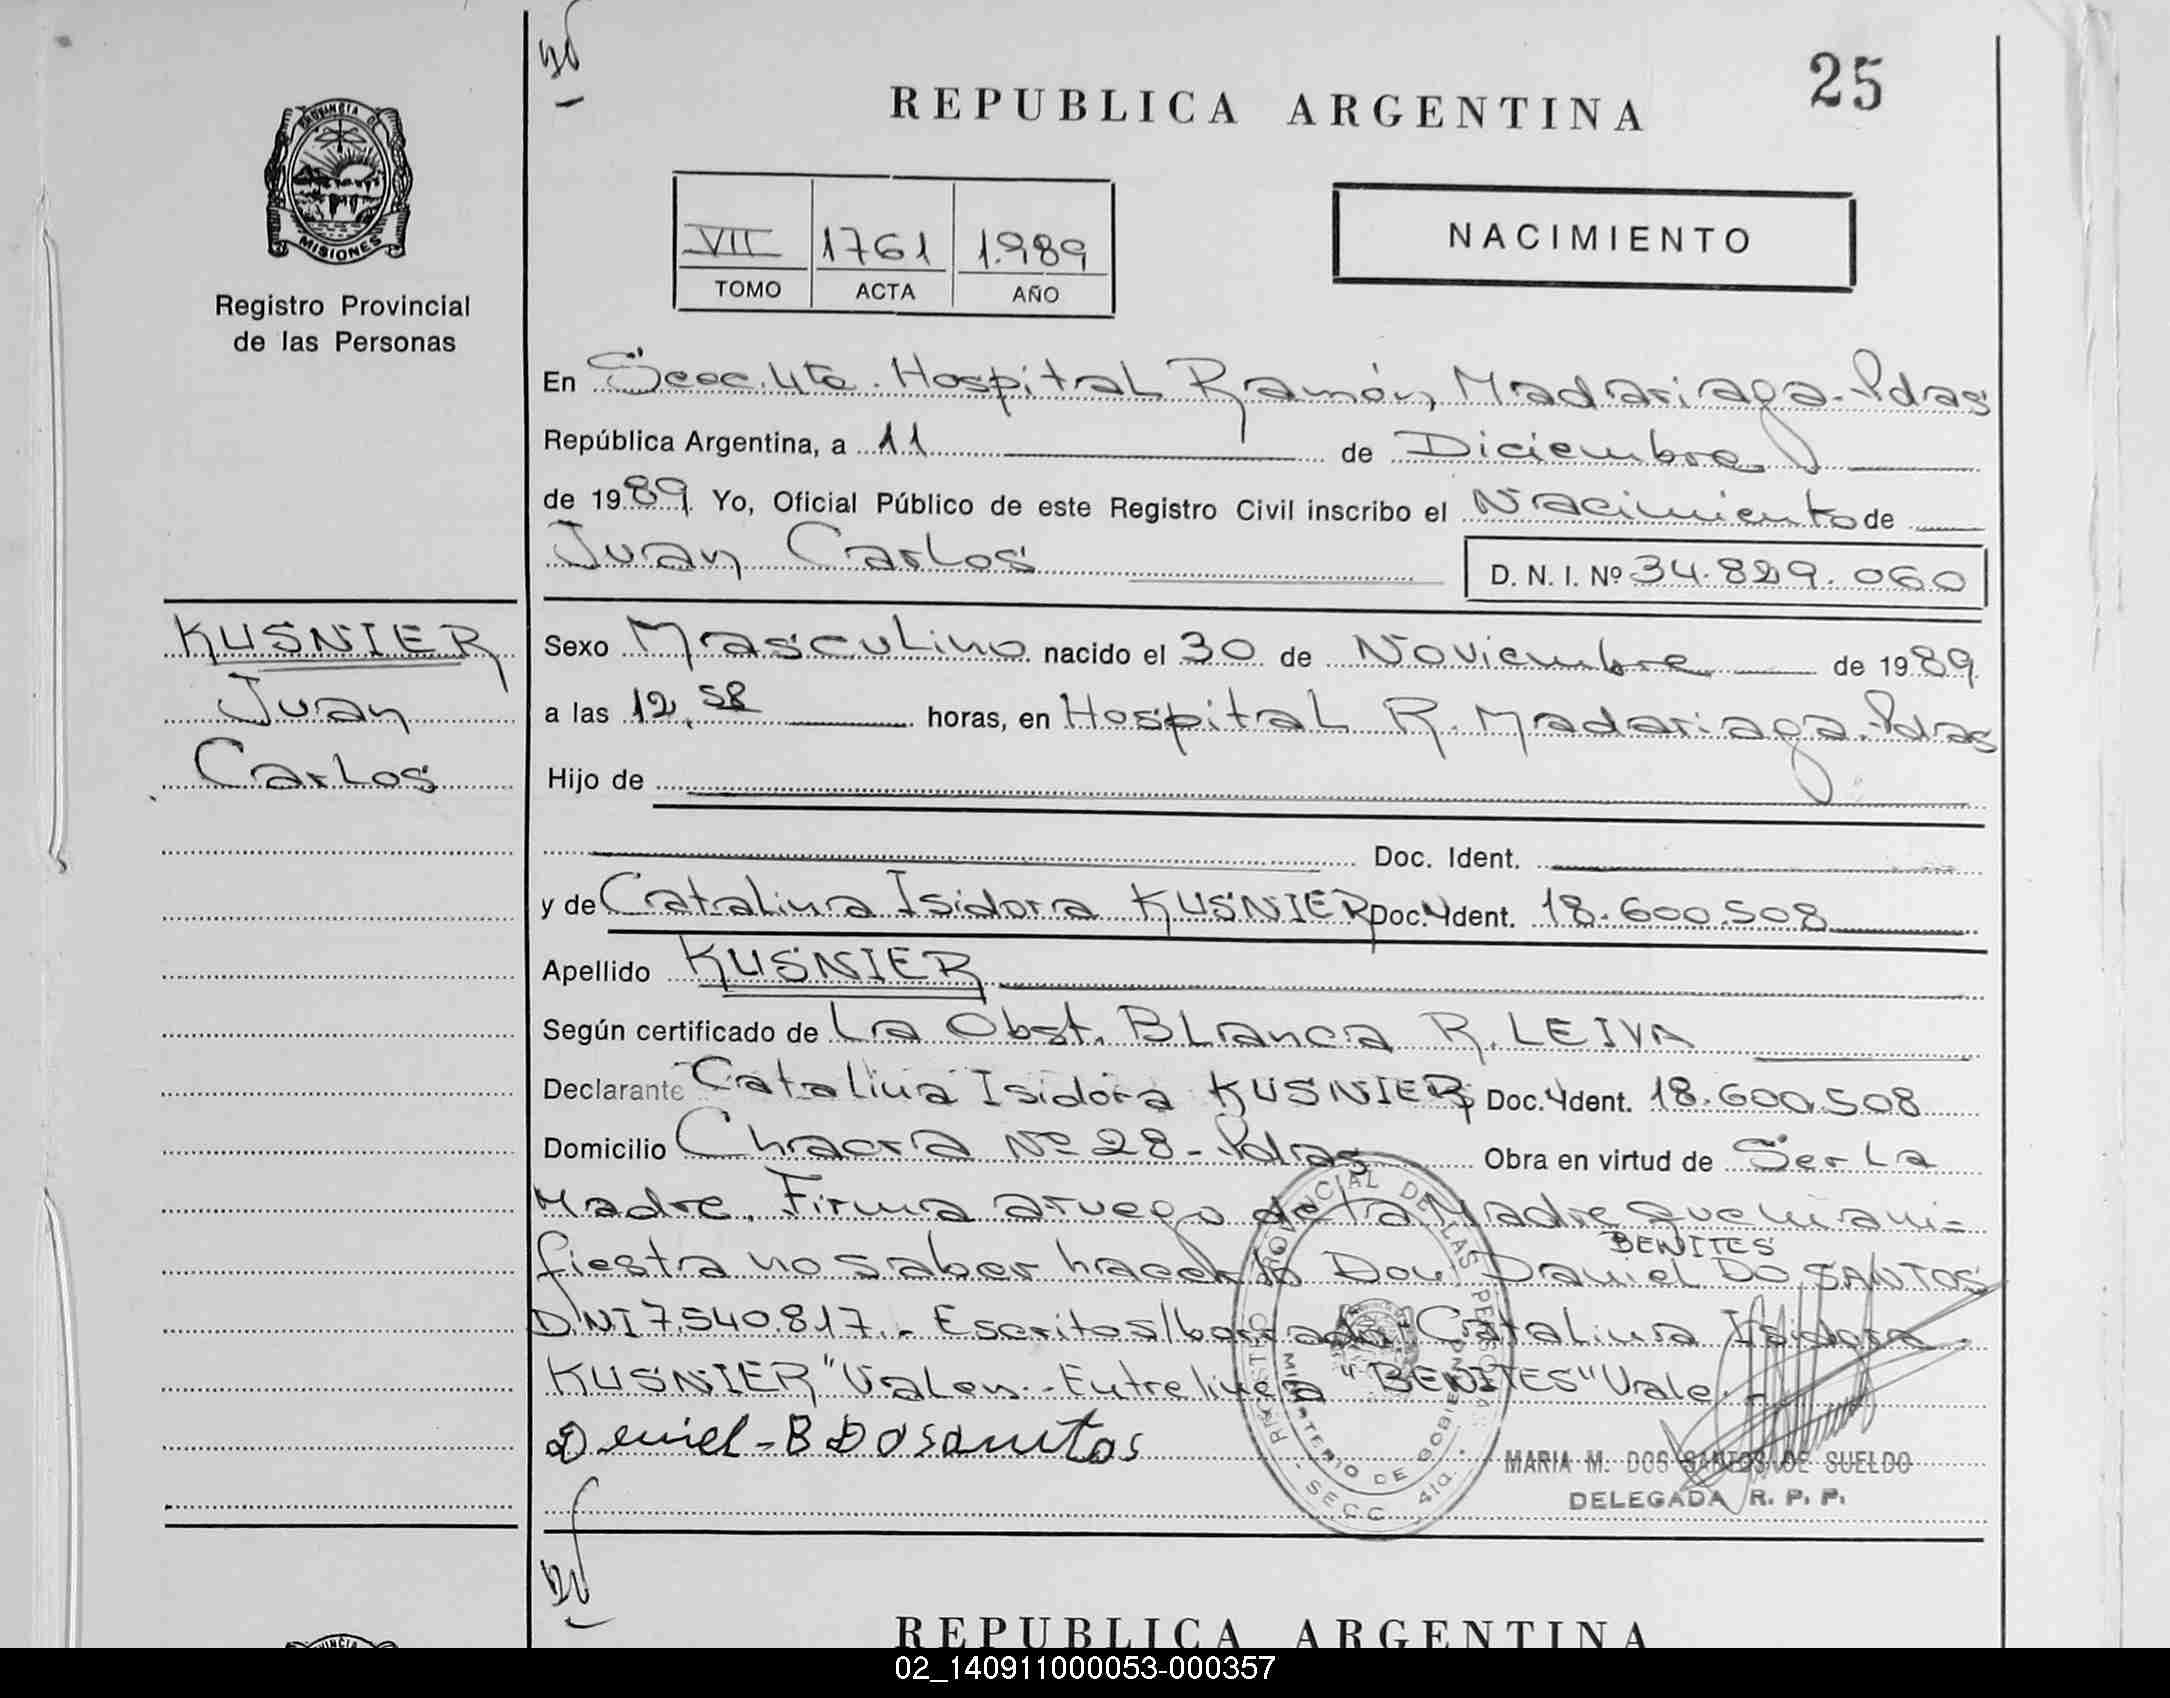 25
REPUBLICA ARGENTINA
PROVINCIA DE
MISIONES
Registro Provincial
de las Personas
VII 1761 1.989
TOMO ACTA AÑO
NACIMIENTO
En Secc. 4ta. Hospital Ramón Madariaga-Pdas
República Argentina, a 11 de Diciembre
de 1989 Yo, Oficial Público de este Registro Civil inscribo el Nacimiento de
Juan Carlos D. N. I. Nº 34.829.060
KUSNIER
Juan
Carlos
Sexo Masculino nacido el 30 de Noviembre de 1989
a las 12,58 horas, en Hospital R. Madariaga-Pdas
Hijo de
Doc. Ident.
y de Catalina Isidora KUSNIER Doc. Ident. 18.600.508
Apellido KUSNIER
Según certificado de La Obst. BLanca R. LEIVA
Declarante Catalina Isidora KUSNIER Doc. Ident. 18.600.508
Domicilio Chacra Nº 28-Pdas Obra en virtud de Ser La
Madre. Firma a ruego de la Madre que mani-
BENITES
fiesta no saber hacerlo Don Daniel DO SANTOS
DNI 7.540.817.- Escritos/borrado "Catalina Isidora
KUSNIER" Valen.- Entrelinea "BENITES" Vale.-
Deniel-B DOsantos
REGISTRO PROVINCIAL DE LAS PERSONAS
MINISTERIO DE GOBIERNO
- SECC. 4ta. -
MARIA M. DOS SANTOS DE SUELDO
DELEGADA R. P. P.
REPUBLICA ARGENTINA
02_140911000053-000357